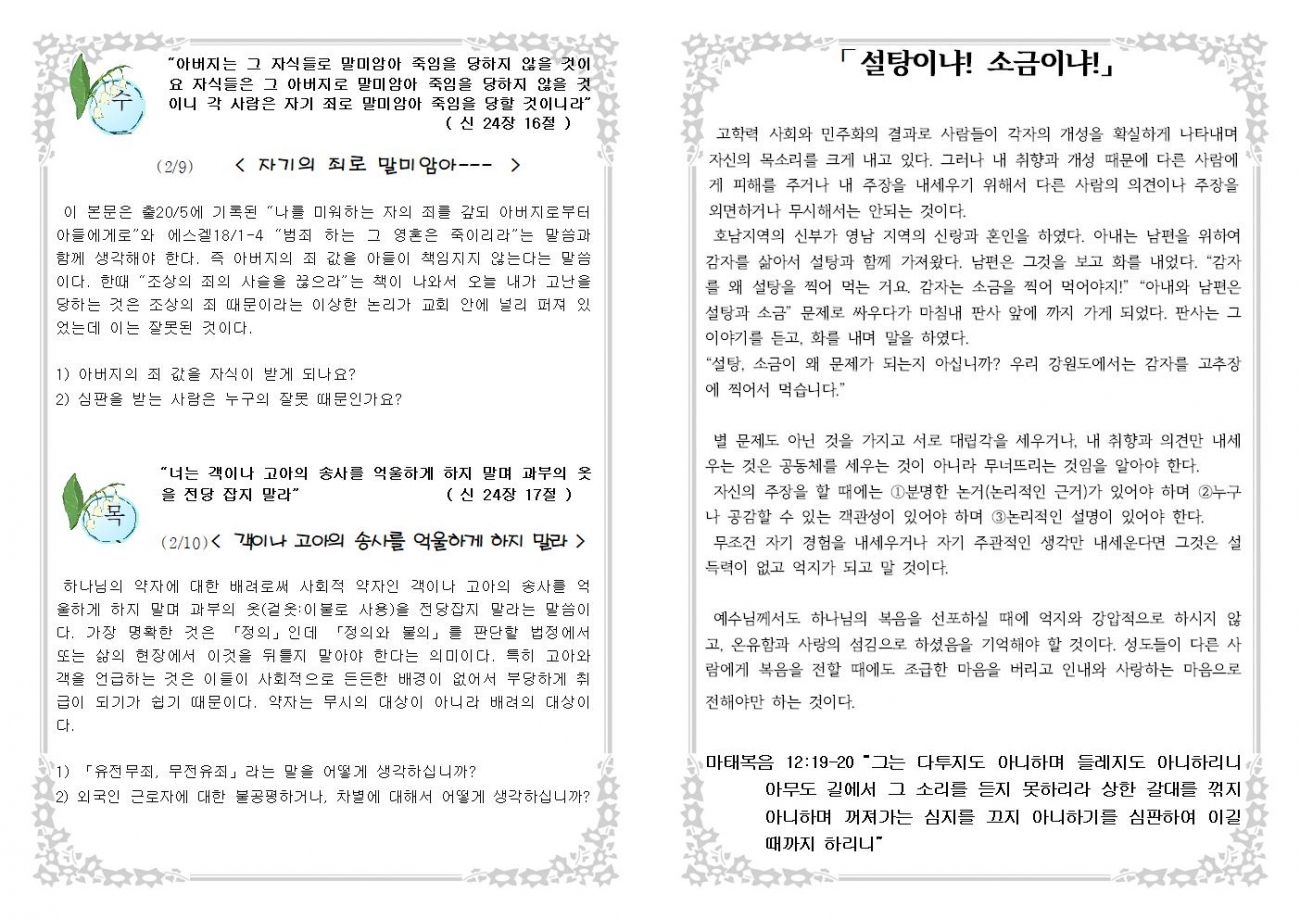 수
“아버지는 그 자식들로 말미암아 죽임을 당하지 않을 것이
요 자식들은 그 아버지로 말미암아 죽임을 당하지 않을 것
이니 각 사람은 자기 죄로 말미암아 죽임을 당할 것이니라”
( 신 24장 16절 )
(2/9) < 자기의 죄로 말미암아--- >
이 본문은 출20/5에 기록된 “나를 미워하는 자의 죄를 갚되 아버지로부터
아들에게로”와 에스겔18/1-4 “범죄 하는 그 영혼은 죽이리라”는 말씀과
함께 생각해야 한다. 즉 아버지의 죄 값을 아들이 책임지지 않는다는 말씀
이다. 한때 “조상의 죄의 사슬을 끊으라”는 책이 나와서 오늘 내가 고난을
당하는 것은 조상의 죄 때문이라는 이상한 논리가 교회 안에 널리 퍼져 있
었는데 이는 잘못된 것이다.
1) 아버지의 죄 값을 자식이 받게 되나요?
2) 심판을 받는 사람은 누구의 잘못 때문인가요?
목
“너는 객이나 고아의 송사를 억울하게 하지 말며 과부의 옷
을 전당 잡지 말라” ( 신 24장 17절 )
(2/10)< 객이나 고아의 송사를 억울하게 하지 말라 >
하나님의 약자에 대한 배려로써 사회적 약자인 객이나 고아의 송사를 억
울하게 하지 말며 과부의 옷(겉옷:이불로 사용)을 전당잡지 말라는 말씀이
다. 가장 명확한 것은 「정의」인데 「정의와 불의」를 판단할 법정에서
또는 삶의 현장에서 이것을 뒤틀지 말아야 한다는 의미이다. 특히 고아와
객을 언급하는 것은 이들이 사회적으로 든든한 배경이 없어서 부당하게 취
급이 되기가 쉽기 때문이다. 약자는 무시의 대상이 아니라 배려의 대상이
다.
1) 「유전무죄, 무전유죄」라는 말을 어떻게 생각하십니까?
2) 외국인 근로자에 대한 불공평하거나, 차별에 대해서 어떻게 생각하십니까?
「설탕이냐! 소금이냐!」
고학력 사회와 민주화의 결과로 사람들이 각자의 개성을 확실하게 나타내며
자신의 목소리를 크게 내고 있다. 그러나 내 취향과 개성 때문에 다른 사람에
게 피해를 주거나 내 주장을 내세우기 위해서 다른 사람의 의견이나 주장을
외면하거나 무시해서는 안되는 것이다.
호남지역의 신부가 영남 지역의 신랑과 혼인을 하였다. 아내는 남편을 위하여
감자를 삶아서 설탕과 함께 가져왔다. 남편은 그것을 보고 화를 내었다. “감자
를 왜 설탕을 찍어 먹는 거요. 감자는 소금을 찍어 먹어야지!” “아내와 남편은
설탕과 소금” 문제로 싸우다가 마침내 판사 앞에 까지 가게 되었다. 판사는 그
이야기를 듣고, 화를 내며 말을 하였다.
“설탕, 소금이 왜 문제가 되는지 아십니까? 우리 강원도에서는 감자를 고추장
에 찍어서 먹습니다.”
별 문제도 아닌 것을 가지고 서로 대립각을 세우거나, 내 취향과 의견만 내세
우는 것은 공동체를 세우는 것이 아니라 무너뜨리는 것임을 알아야 한다.
자신의 주장을 할 때에는 ①분명한 논거(논리적인 근거)가 있어야 하며 ②누구
나 공감할 수 있는 객관성이 있어야 하며 ③논리적인 설명이 있어야 한다.
무조건 자기 경험을 내세우거나 자기 주관적인 생각만 내세운다면 그것은 설
득력이 없고 억지가 되고 말 것이다.
예수님께서도 하나님의 복음을 선포하실 때에 억지와 강압적으로 하시지 않
고, 온유함과 사랑의 섬김으로 하셨음을 기억해야 할 것이다. 성도들이 다른 사
람에게 복음을 전할 때에도 조급한 마음을 버리고 인내와 사랑하는 마음으로
전해야만 하는 것이다.
마태복음 12:19-20 “그는 다투지도 아니하며 들레지도 아니하리니
아무도 길에서 그 소리를 듣지 못하리라 상한 갈대를 꺾지
아니하며 꺼져가는 심지를 끄지 아니하기를 심판하여 이길
때까지 하리니”